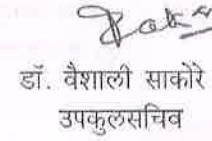 डॉ. वैशाली साकोरे
उपकुलसचिव